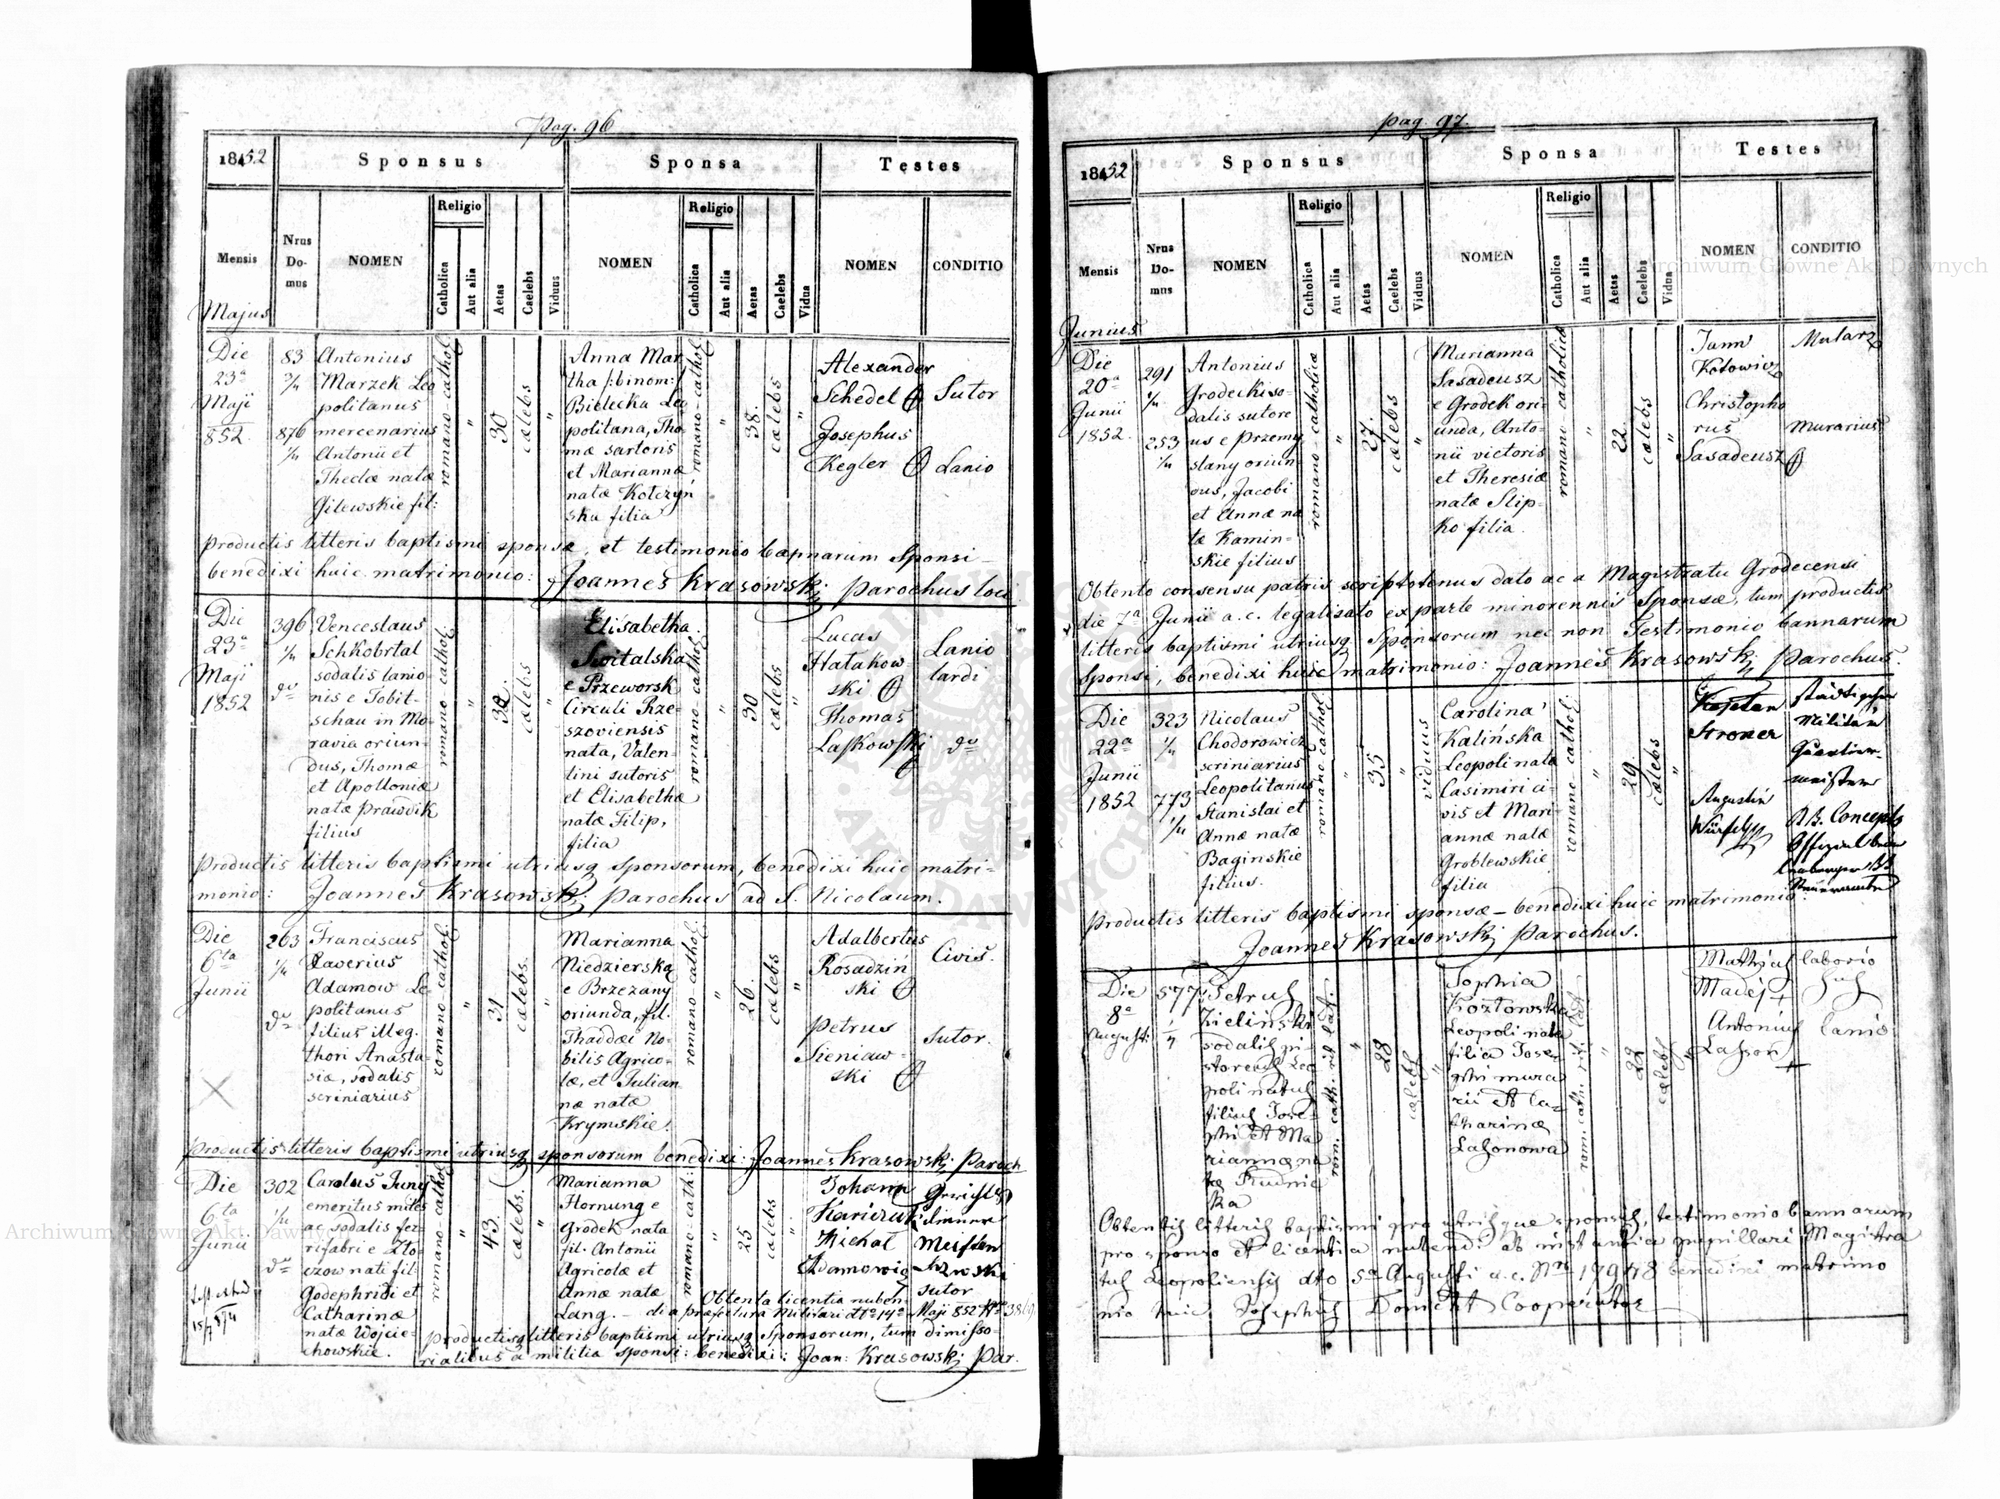 pag. 96
1852
Sponsus
Sponsa
Testes
Mensis
Nrus Do-mus
NOMEN
Religio
Catholica
Aut alia
Aetas
Caelebs
Viduus
NOMEN
Religio
Catholica
Aut alia
Aetas
Caelebs
Vidua
NOMEN
CONDITIO
Majus
Die
23a
Maji
852.
83
876
Antonius
Marzek Leo
politanus
mercenarius
Antonii et
Theclæ natæ
Gilewskie fil:
romano-cathol.
"
30
cælebs
"
Anna Mar
tha /:binom:/
Bielecka Leo
politana, Tho
mæ sartoris
et Mariannæ
natæ Kotczyń
ska filia
romano-cathol.
"
38.
cælebs
"
Alexander
Schedel
Josephus
Kegler
Sutor
Lanio
Productis litteris baptismi sponsæ, et testimonio bannarum Sponsi
benedixi huic matrimonio: Joannes Krasowski Parochus loci
Die
23a
Maji
1852
396
Venceslaus
Schkobrtal
sodalis lanio
nis e Tobit-
schau in Mo-
ravia oriun-
dus, Thomæ
et Apolloniæ
natæ Prawdik
filius
romano-cathol.
"
32.
cælebs
"
Elisabetha
Switalska
e Przeworsk
Circuli Rze-
szoviensis
nata, Valen-
tini sutoris
et Elisabethæ
natæ Filip,
filia
romano-cathol.
"
30
cælebs
"
Lucas
Hatakow-
ski
Thomas
Laskowski
Lanio
lardi
Productis litteris baptismi utriusq sponsorum, benedixi huic matri-
monio: Joannes Krasowski Parochus ad S. Nicolaum.
Die
6ta
Junii
263
Franciscus
Xaverius
Adamow Le
politanus
filius illeg.
thori Anasta-
siæ, sodalis
scriniarius
romano-cathol.
"
31
cælebs.
"
Marianna
Niedzierska
e Brzezany
oriunda, fil.
Thaddæi No-
bilis Agrico-
læ, et Julian
næ natæ
Krymskie.
romano-cathol.
"
26.
cælebs
"
Adalbertus
Rosadziń
ski
Petrus
Sieniaw-
ski
Civis.
Sutor.
Productis litteris baptismi utriusq sponsorum benedixi: Joannes Krasowski Paroch
Die
6ta
Junii
302
Carolus Jung
emeritus miles
ac sodalis fer-
rifabri e Zło-
czow nati fil
Godephridi et
Catharinæ
natæ Wojcie-
chowskie.
romano-cathol.
"
43.
cælebs.
"
Marianna
Hornung e
Grodek nata
fil. Antonii
Agricolæ et
Annæ natæ
Lang.
romano-cath.
"
25
cælebs
"
Johann
Michal
Adamowicz
Sutor
Obtenta licentia nuben-
di a præfectura Militari dto 14a Maji 852
Productisq litteris baptismi utriusq Sponsorum, tum dimisso-
rialibus a militia sponsi: benedixi: Joan: Krasowski Par.
pag. 97.
1852
Sponsus
Sponsa
Testes
Mensis
Nrus Do-mus
NOMEN
Religio
Catholica
Aut alia
Aetas
Caelebs
Viduus
NOMEN
Religio
Catholica
Aut alia
Aetas
Caelebs
Vidua
NOMEN
CONDITIO
Junius
Die
20a
Junii
1852.
291
253
Antonius
Grodecki so-
dalis sutore
us e Przemy
slany oriun
dus, Jacobi
et Annæ na
tæ Kamin-
skie filius
romano-catholicæ
"
27.
cælebs
"
Marianna
Sasadeusz
e Grodek ori-
unda, Anto-
nii victoris
et Theresiæ
natæ Slip-
ko filia.
romano catholica
"
22.
cælebs
"
Jann
Kotowicz
Christopho
rus
Sasadeusz
Mularz
Murarius
Obtento consensu patris scriptotenus dato ac a Magistratu Grodecensi
die 7a Junii a.c. legalisato ex parte minorennis Sponsæ, tum productis
litteris baptismi utriusq Sponsorum nec non Testimonio bannarum
Sponsi, benedixi huic matrimonio: Joannes Krasowski Parochus.
Die
22a
Junii
1852
323
773
Nicolaus
Chodorowicz
scriniarius
Leopolitanus
Stanislai et
Annæ natæ
Baginskie
filius.
romano-cathol.
"
35
"
viduus
Carolina
Kalińska
Leopoli nata
Casimiri ci-
vis et Mari-
annæ natæ
Groblewskie
filia
romano-cathol.
"
29
cælebs
"
Kajetan
Stroner
Augustin
städtischer
Militär
Quartier-
meister
Productis litteris baptismi sponsæ - benedixi huic matrimonio.
Joannes Krasowski Parochus.
Die
8a
Augusti
577
Petrus
Zieliński
sodalis pi-
storeus Leo
poli natus
filius Jose-
phi et Ma
riannæ na
tæ Rudnic
ka
rom. cath. rit. lat.
"
28
cælebs
"
Sophia
Kozłowska
Leopoli nata
filia Jose-
phi mura
rii et Ca-
tharinæ
Lasonowa
rom. cath. rit. lat.
"
22
cælebs
"
Mathias
Madej +
Antonius
Lasson
+
laborio
sus
lanio
Obtentis litteris baptismi pro utrisque sponsis, testimonio bannarum
pro sponso et licentia nubendi ab instantia pupillari Magistra
tus Leopoliensis dto 5a Augusti a.c. Nro 17948 benedixi matrimo
nio huic. Josephus Cooperator
Archiwum Główne Akt Dawnych
Archiwum Główne Akt Dawnych